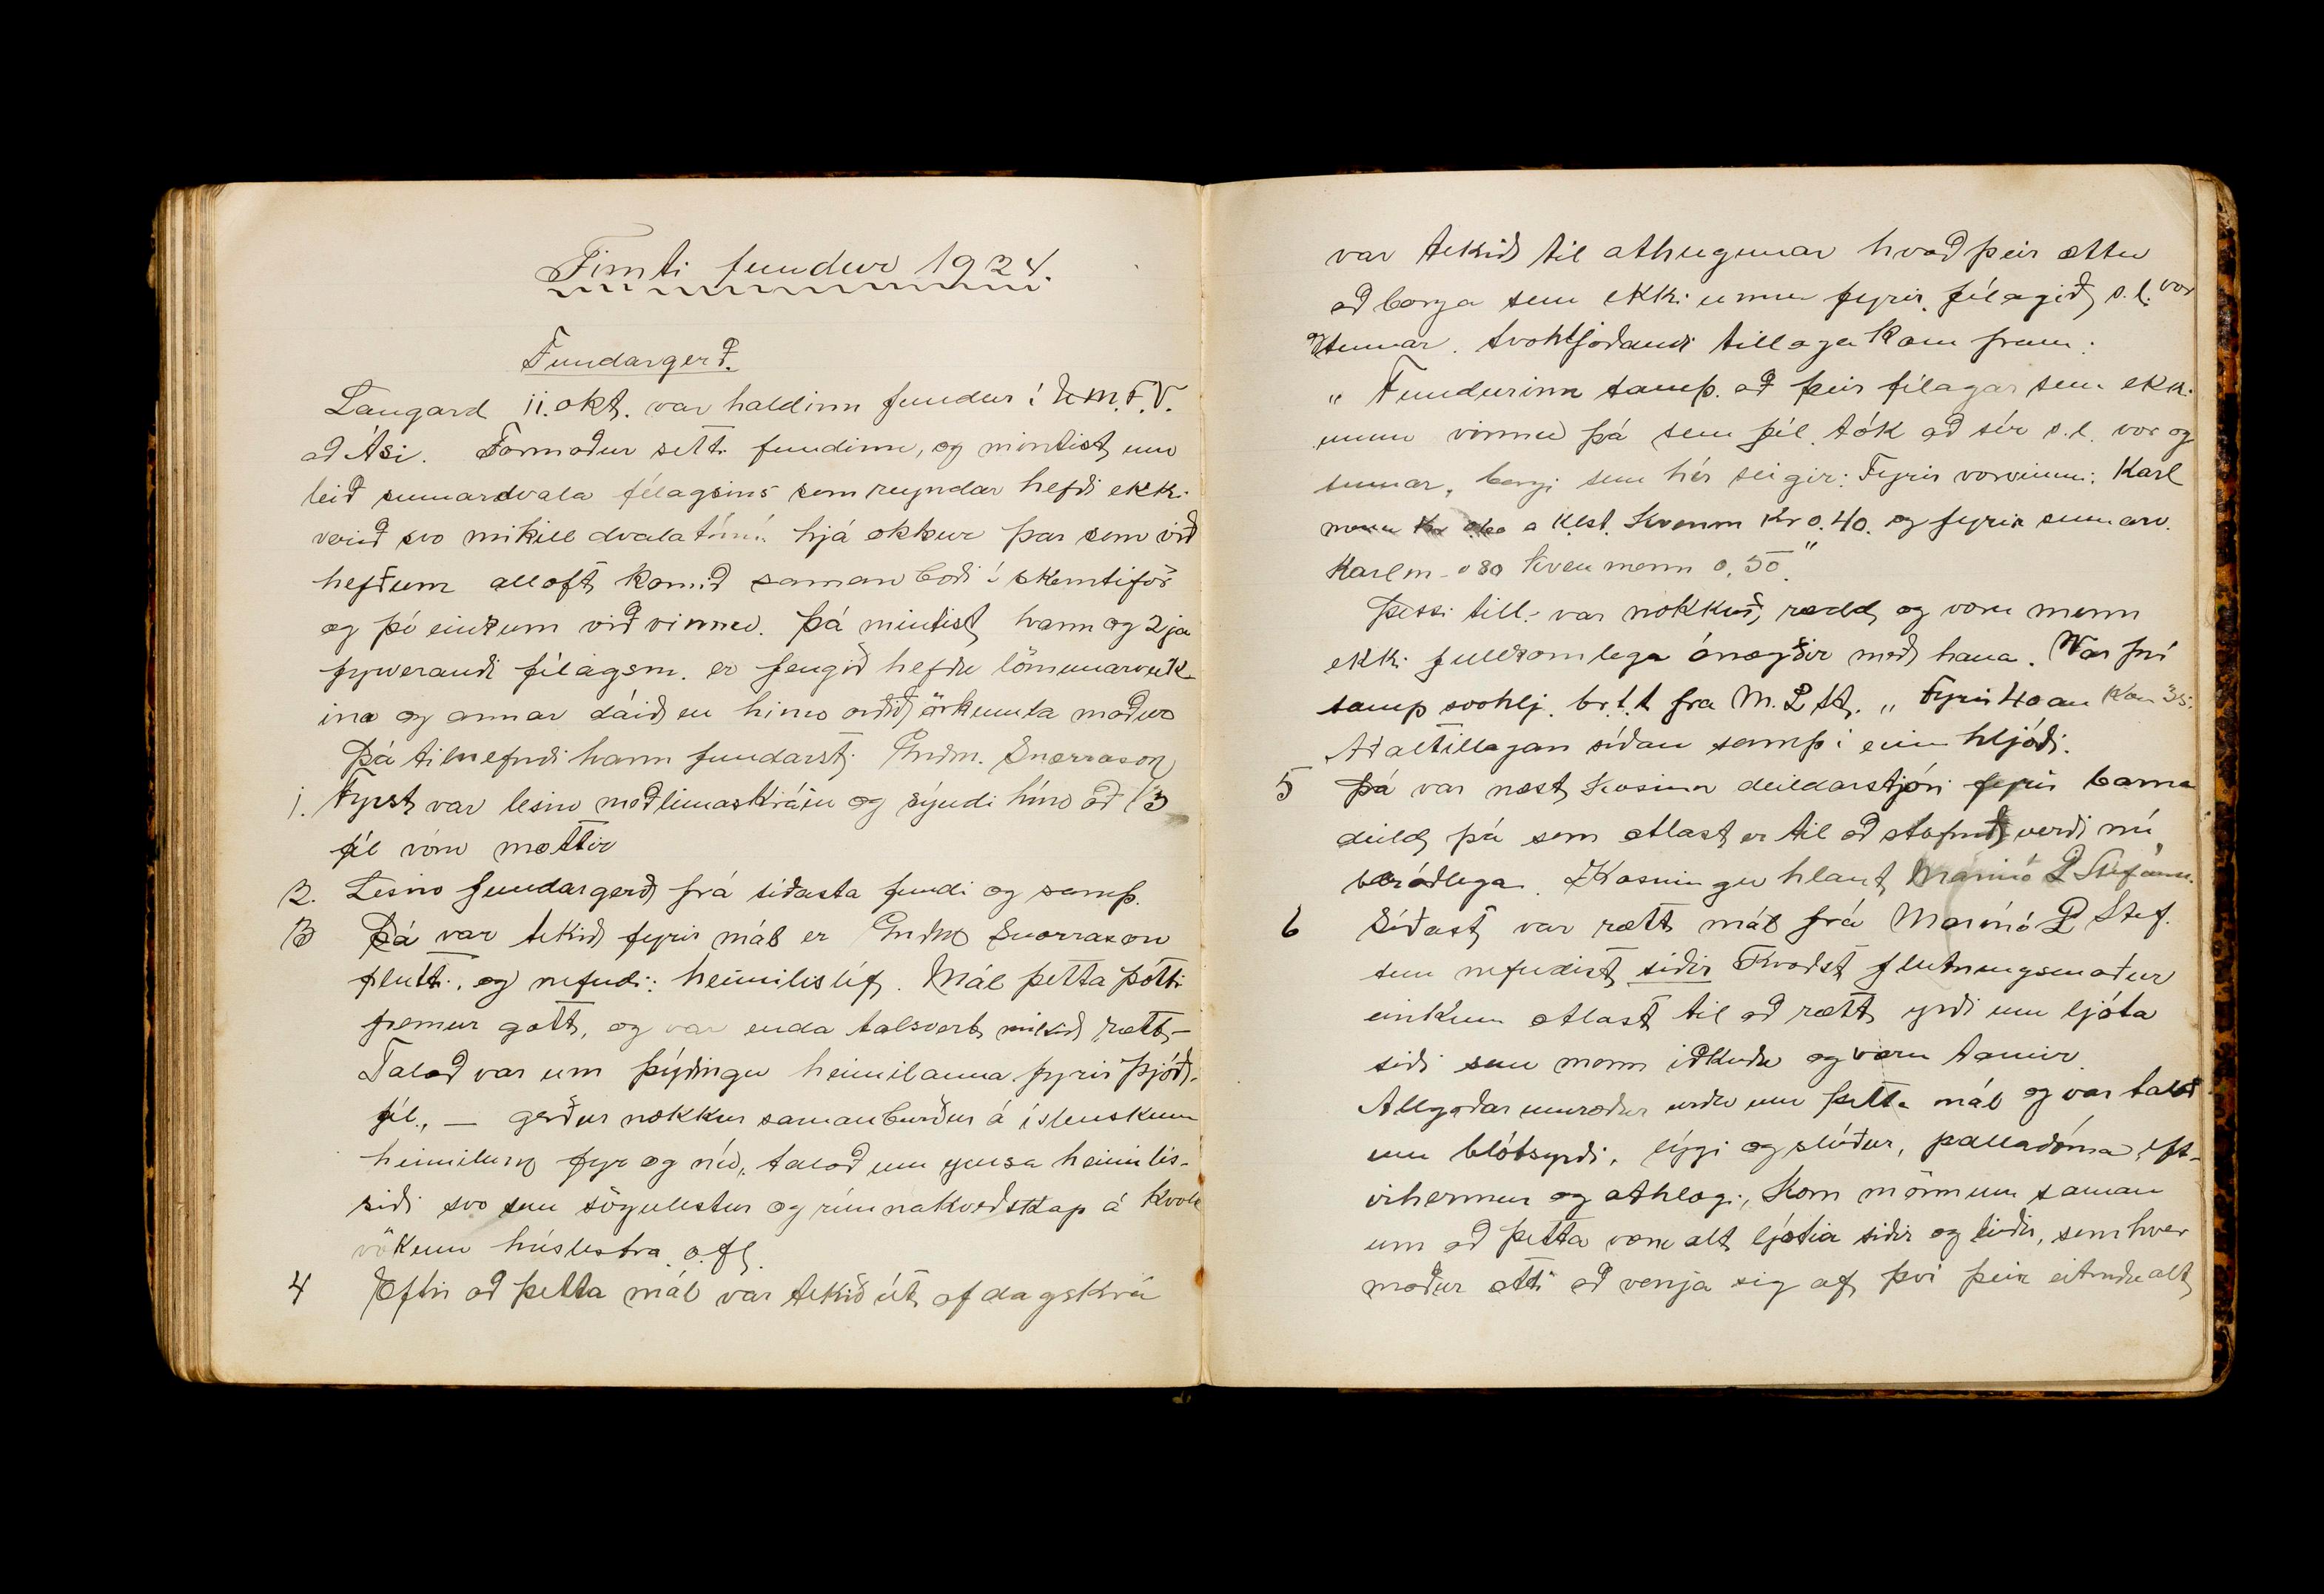 Fimti fundur 1924.
Fundargerð.
Laugard 11. okt. var haldinn fundur í U.M.F.V.
að Ási. Formaður setti fundinn, og mintist um
leið sumardvala félagsins sem reyndar hefði ekki
verið svo mikill dvalatími hjá okkur þar sem við
hefðum alloft komið saman bæði í skemtiför
og þó einkum við vinnu. Þá mintist hann og 2ja
fyrverandi félagsm. er fengið hefðu lömunarveik
ina og annar dáið en hinn orðið örkumla maður
Þá tilnefndi hann fundarstj. Guðm. Snorrason
1. Fyrst var lesin meðlimaskráin og sýndi hún að 13
fél vóru mættir
2. Lesin fundargerð frá síðasta fundi og samþ.
3 Þá var tekið fyrir mál er Guðm Snorrason
flutti, og nefndi: heimilislíf. Mál þetta þótti
fremur gott, og var enda talsvert mikið rætt,-
Talað var um þýðingu heimilanna fyrir þjóð-
fél., — gerður nokkur samanburður á íslenskum
heimilum fyr og nú, talað um ymsa heimilis-
siði svo sem sögulestur og rímnakveðskap á kvöld
vökum húslestra o.fl.
4 Eftir að þetta mál var tekið út af dagskrá
var tekið til athugunar hvað þeir ættu
að borga sem ekki unnu fyrir félagið s.l. vor
og sumar. Svohljóðandi tillaga kom fram:
„Fundurinn samþ. að þeir félagar sem ekki
unnu vinnu þá sem fél. tók að sér s.l. vor og
sumar, borgi sem hér seigir: Fyrir vorvinnu: Karl
menn a klst. Kvenm Kr 0.40. og fyrir sumarv.
Karlm - 0 80 Kvenmenn 0,50."
Þessi till. var nokkuð rædd og voru menn
ekki fullkomlega ánægðir með hana. Var því
samþ svohlj. br.t.t frá M. L St. „Fyrir 40 au kom 35.
Aðaltillagan síðan samþ í einu hljóði.
5 Þá var næst kosinn deildarstjóri fyrir barna
deild þá sem ætlast er til að stofnuð verði nú
bráðlega. Kosningu hlaut Marinó L Stefánss.
6 Síðast var rætt mál frá Marinó L Stef.
sem nefndist siðir Kvaðst flutningsmaður
einkum ætlast til að rætt yrði um ljóta
siði sem menn iðkuðu og væru tamir.
Allgóðar umræður urðu um þetta mál og var talað
um blótsyrði, lýgi og slúður, palladóma, eft-
irhermur og athlægi, Kom mönnum saman
um að þetta væru alt ljótir siðir og leiðir, sem hver
maður ætti að venja sig af, því þeir eitruðu alt